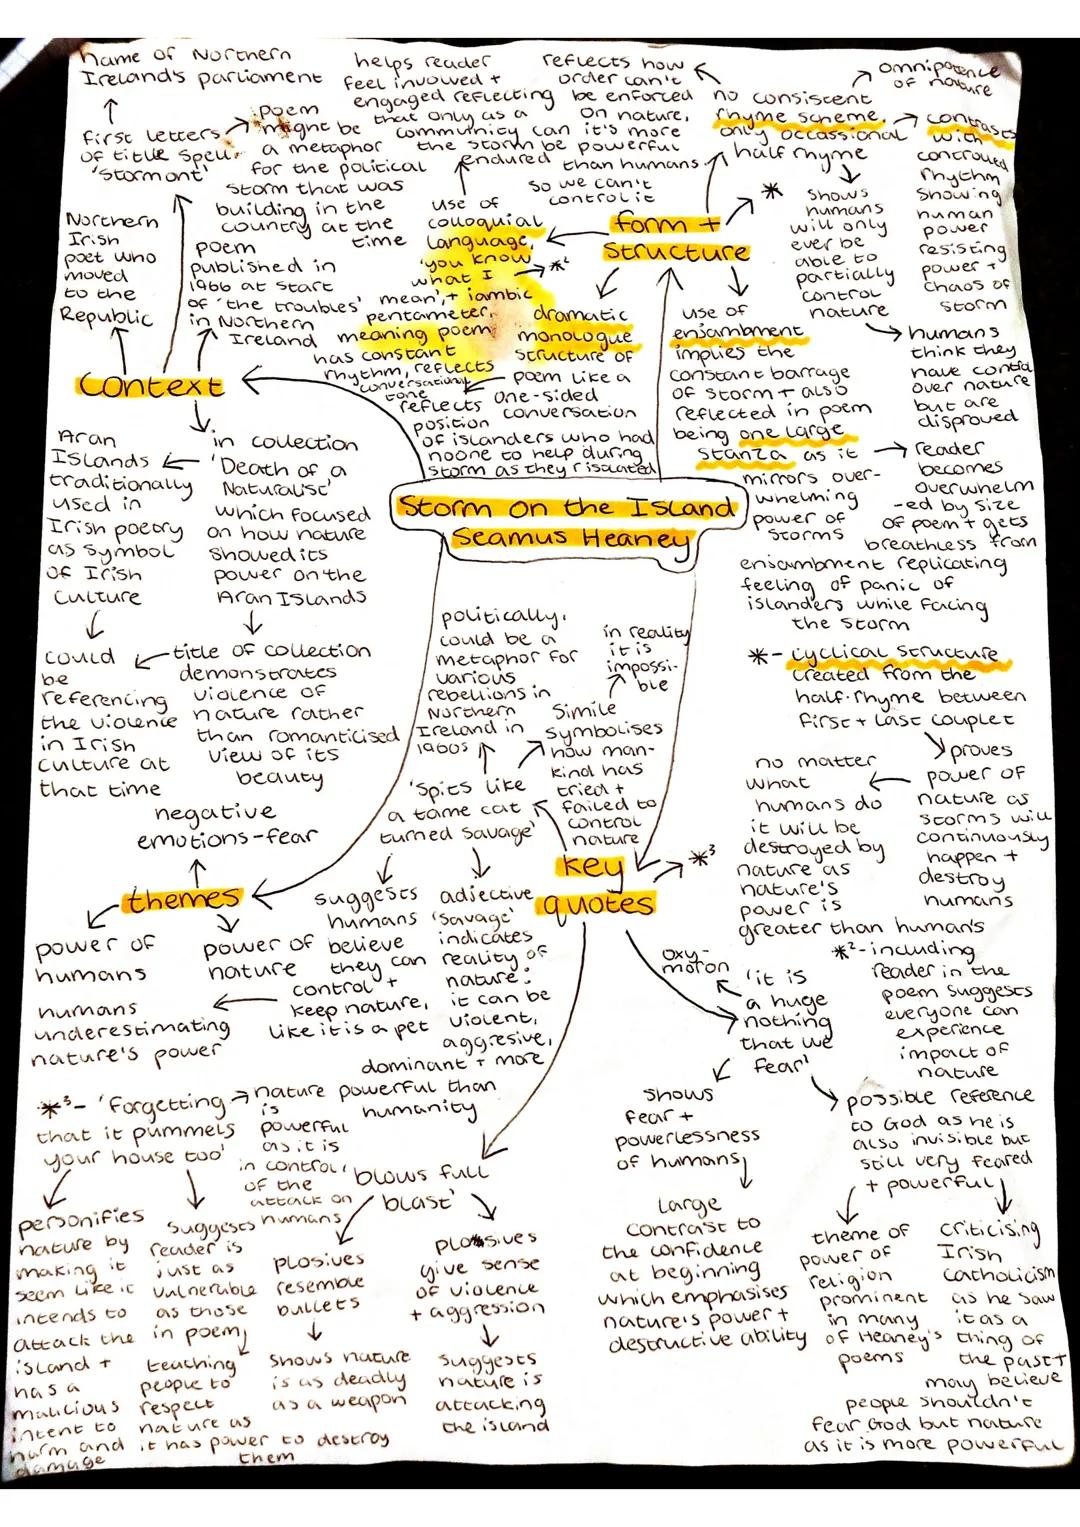 name of Northern
Ireland's parliament
first letters
of title spell
'stormont'
poem
might be
a metaphor
for the political
storm that was
building in the
country at the
time
Northern
Irish
poet who
moved
to the
Republic
poem
published in
1966 at start
of 'the troubles'
in Northern
Ireland
Context
Aran
Islands
traditionally
used in
Irish poetry
as symbol
of Irish
culture
could
be
referencing
the violence
in Irish
culture at
that time
in collection
'Death of a
Naturalist'
which focused
on how nature
showed its
power on the
Aran Islands
title of collection
demonstrates
violence of
nature rather
than romanticised
view of its
beauty
helps reader
feel involved +
engaged reflecting
that only as a
community can
the storm be
endured
use of
colloquial
language,
'you know
what I
mean', + iambic
pentameter,
meaning poem
has constant
rhythm, reflects
conversational
tone
*²
reflects how
order can't
be enforced
on nature,
it's more
powerful
than humans
so we can't
control it
form +
structure
*
no consistent
rhyme scheme,
only occassional
half rhyme
omnipotence
of nature
contrasts
with
controlled
rhythm
showing
human
power
resisting
power +
chaos of
storm
shows
humans
will only
ever be
able to
partially
control
nature
humans
think they
have control
over nature
but are
disproved
dramatic
monologue
structure of
poem like a
one-sided
conversation
reflects
position
of islanders who had
noone to help during
storm as they r isolated
use of
enjambment
implies the
constant barrage
of storm + also
reflected in poem
being one large
stanza as it
mirrors over-
whelming
power of
storms
reader
becomes
overwhelm
-ed by size
of poem + gets
breathless from
enjambment replicating
feeling of panic of
islanders while facing
the storm
Storm on the Island
Seamus Heaney
*- cyclical structure
created from the
half-rhyme between
first + last couplet
proves
power of
nature as
storms will
continuously
happen +
destroy
humans
no matter
what
humans do
it will be
destroyed by
nature as
nature's
power is
greater than human's
*²-including
reader in the
poem suggests
everyone can
experience
impact of
nature
themes
negative
emotions-fear
power of
humans
power of
nature
humans
underestimating
nature's power
key
quotes
*³
'spits like
a tame cat
turned savage'
politically,
could be a
metaphor for
various
rebellions in
Northern
Ireland in
1960s
simile
symbolises
how man-
kind has
tried +
failed to
control
nature
in reality
it is
impossi-
ble
suggests
humans
believe
they can
control +
keep nature,
like it is a pet
adjective
'savage'
indicates
reality of
nature:
it can be
violent,
aggresive,
dominant + more
powerful than
humanity
oxy-
moron
'it is
a huge
nothing
that we
fear'
shows
fear +
powerlessness
of humans
large
contrast to
the confidence
at beginning
which emphasises
nature's power +
destructive ability
possible reference
to God as he is
also invisible but
still very feared
+ powerful
theme of
power of
religion
prominent
in many
of Heaney's
poems
criticising
Irish
catholicism
as he saw
it as a
thing of
the past +
may believe
people shouldn't
fear God but nature
as it is more powerful
*³- 'forgetting
that it pummels
your house too'
nature
is
powerful
as it is
in control
of the
attack on
humans
personifies
nature by
making it
seem like it
intends to
attack the
island +
has a
malicious
intent to
harm and
damage
suggests
reader is
just as
vulnerable
as those
in poem
teaching
people to
respect
nature as
it has power to destroy
them
'blows full
blast'
plosives
resemble
bullets
shows nature
is as deadly
as a weapon
plosives
give sense
of violence
+ aggression
suggests
nature is
attacking
the island